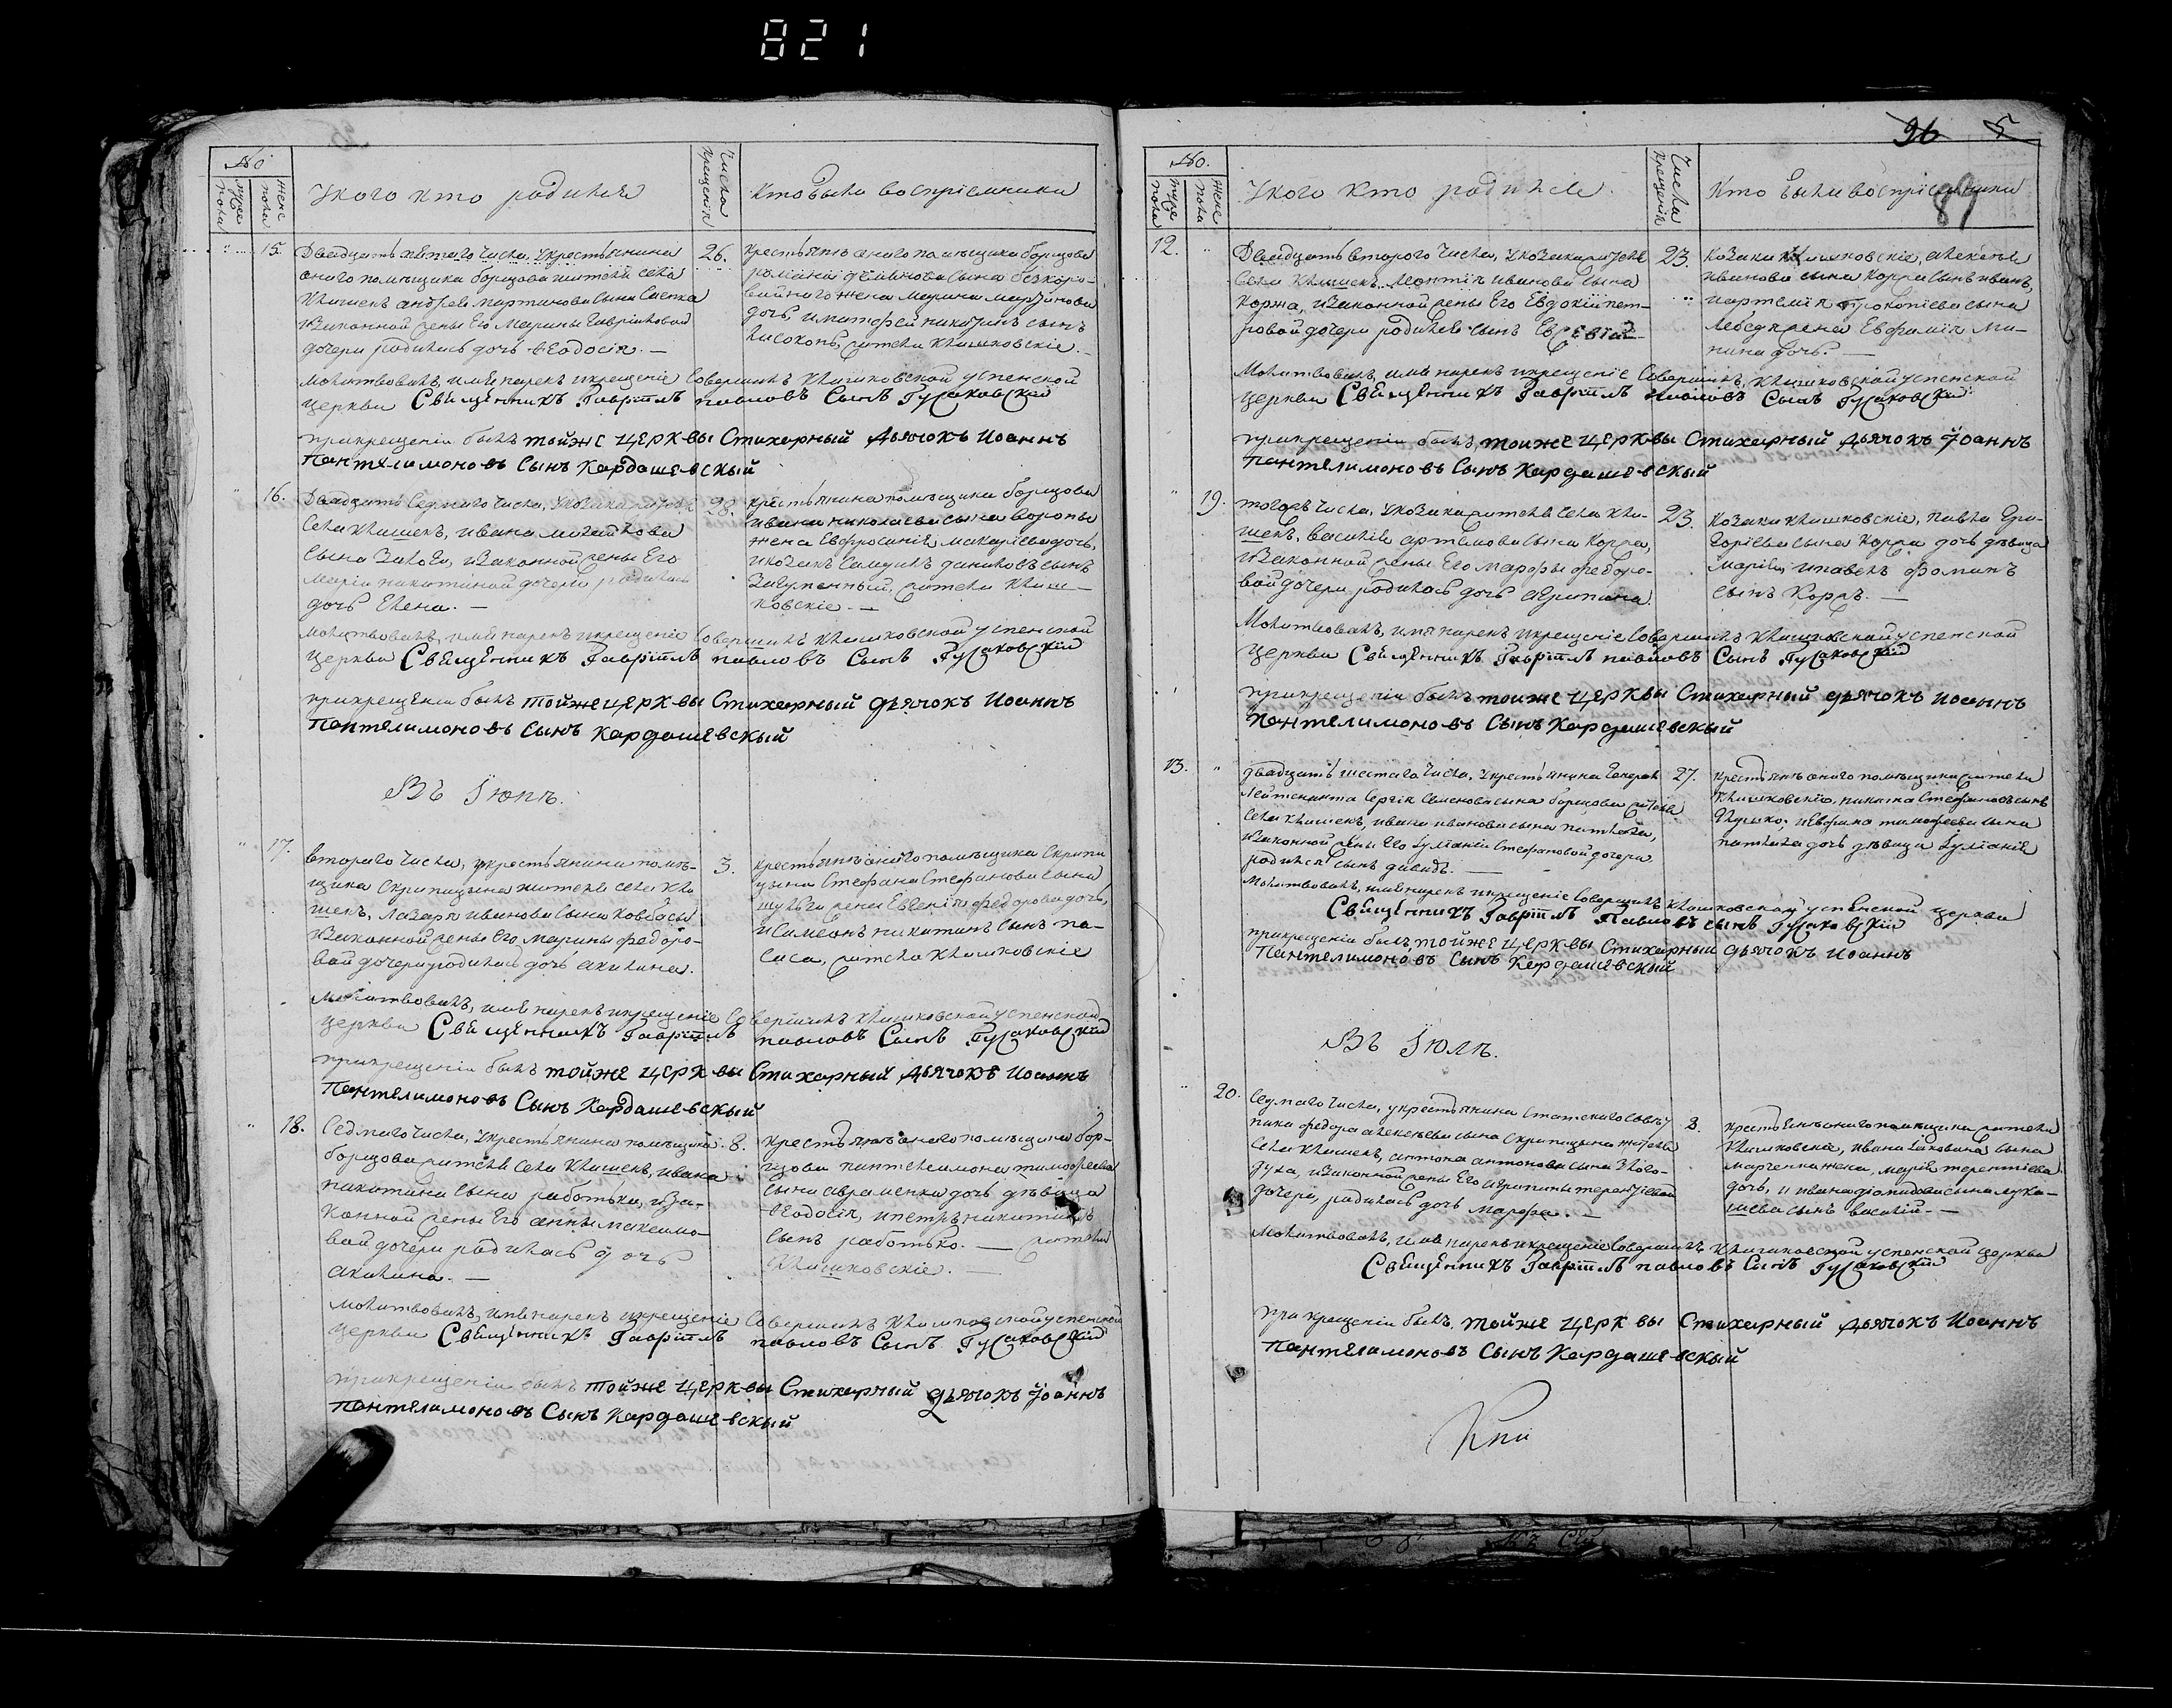 821
No
муж: пола
женс пола
Укого кто родился
Числа Крещенія
Кто были воспріемники
15.
Двадцать пятаго числа, у крестьянина
оного помѣщика борщова жителя села
Клишекъ андрея мартинова сына
и законной жены Его Марины Гавриловой
дочери родилась дочь Ѳеодосія. —
26.
Крестьянъ оного помѣщика борщова
романа
жена марина мартинова
дочь, и тимофей никитинъ сынъ
жители Клишковскіе. —
Молитвовалъ, имя нарекъ и крещеніе Совершилъ Клишковской успенской
церкви Священникъ Гавріилъ павловъ Сынъ Гусаковскій
при крещеніи былъ тойже церквы Стихарный дьячокъ Иоаннъ
Пантелимоновъ Сынъ Кардашевскый
16.
Двадцать Седмаго числа, укозака жителя
Села клишекъ, ивана михайлова
сына и законной жены Его
Маріи никитиной дочери родилась
дочь Елена. —
28.
Крестьянина помѣщика борщова
ивана николаева сына вороны
жена Евфросинія, макаріева дочь,
и козакъ Самуилъ даниловъ сынъ
жители Клиш-
ковскіе. —
Молитвовалъ, имя нарекъ и крещеніе Совершилъ Клишковской успенской
церкви Священникъ Гавріилъ павловъ Сынъ Гусаковскій
при крещеніи былъ тойже церквы Стихарный дьячокъ Иоаннъ
Пантелимоновъ Сынъ Кардашевскый
Въ Іюнѣ.
17.
втораго числа, у крестьянина помѣ-
щика Скрипицына жителя села кли
шекъ, Лазаря иванова сына ковбасы
и законной жены Его марины федоро-
вой дочери родилась дочь акилина.
3.
крестьянъ оного помѣщика Скрипи
цына Стефана Стефанова сына
шульги жена Евгенія федорова дочь,
и Симеонъ никитинъ сынъ
жители Клишковскіе
Молитвовалъ, имя нарекъ и крещеніе Совершилъ Клишковской успенской
церкви Священникъ Гавріилъ павловъ Сынъ Гусаковскій
при крещеніи былъ тойже церквы Стихарный дьячокъ Иоаннъ
Пантелимоновъ Сынъ Кардашевскый
18.
Седмаго числа, у крестьянина помѣщика
борщова жителя села Клишекъ, ивана
никитина сына работька, и за-
конной жены Его анны максимо-
вой дочери родилась дочь
акилина. —
8.
крестьянъ оного помѣщика бор-
щова пантелеимона тимофеева
сына авраменка дочь дѣвица
Ѳеодосія, и петръ никитинъ
сынъ работько. — жители
Клишковскіе. —
Молитвовалъ, имя нарекъ и крещеніе Совершилъ Клишковской успенской
церкви Священникъ Гавріилъ павловъ Сынъ Гусаковскій
при крещеніи былъ тойже церквы Стихарный дьячокъ Іоаннъ
Пантелимоновъ Сынъ Кардашевскый
96 5
89
No.
муже пола
женс пола
Укого кто родился
Числа Крещенія
Кто были воспріемники
12.
Двадцать втораго числа, у козака жителя
Села Клишекъ Леонтія иванова сына
Коржа, и законной жены Его Евдокіи пет-
ровой дочери родился сынъ
23.
Козаки клишковскіе, алексѣя
иванова сына Коржа сынъ иванъ,
и артемія прокопіева сына
жена Евфимія Ми-
нина дочь. —
Молитвовалъ, имя нарекъ и крещеніе Совершилъ, Клишковской успенской
церкви Священникъ Гавріилъ павловъ Сынъ Гусаковскій
при крещеніи былъ, тойже церквы Стихарный дьячокъ Іоаннъ
Пантелимоновъ Сынъ Кардашевскый
19.
тогожъ числа, у козака жителя села кли-
шекъ, василія артемова сына Коржа,
и законной жены Его марфы федоро-
вой дочери родилась дочь агрипина.
23.
Козаки клишковскіе, павла Гри-
горіева сына Коржа дочь дѣвица
Марія, и павелъ фоминъ
сынъ Коржъ. —
Молитвовалъ, имя нарекъ и крещеніе Совершилъ Клишковской успенской
церкви Священникъ Гавріилъ павловъ Сынъ Гусаковскій
при крещеніи былъ тойже церквы Стихарный дьячокъ Иоаннъ
Пантелимоновъ Сынъ Кардашевскый
13.
двадцать шестаго числа, у крестьянина Генерал
Лейтенанта Сергія Семенова сына борщова жителя
села клишекъ, ивана иванова сына
и законной жены Его Іуліаніи Стефановой дочери
родился сынъ давидъ. —
27.
крестьянъ оного помѣщика жители
Клишковскіе, никита Стефановъ сынъ
и Ефрема тимофеева сына
дочь дѣвица Іуліанія
Молитвовалъ, имя нарекъ и крещеніе Совершилъ Клишковской успенской церкви
Священникъ Гавріилъ Павловъ сынъ Гусаковскій
при крещеніи былъ, тойже церквы Стихарный дьячокъ Иоаннъ
Пантелимоновъ Сынъ Кардашевскый
Въ Іюлѣ.
20.
Седмаго числа, у крестьянина Статскаго Совѣт
ника федора алексѣева сына Скрипицына жителя
села клишекъ, антона антонова сына
и законной жены Его агрипины терентіевой
дочери, родилась дочь марфа. —
8.
крестьянъ оного помѣщика жители
Клишковскіе, ивана сына
марченка жена, марія терентіева
дочь, и ивана діомидова сына лука-
шева сынъ василій. —
Молитвовалъ, имя нарекъ и крещеніе Совершилъ, Клишковской успенской церкви
Священникъ Гавріилъ павловъ Сынъ Гусаковскій
при крещеніи былъ, тойже церквы Стихарный дьячокъ Иоаннъ
Пантелимоновъ Сынъ Кардашевскый